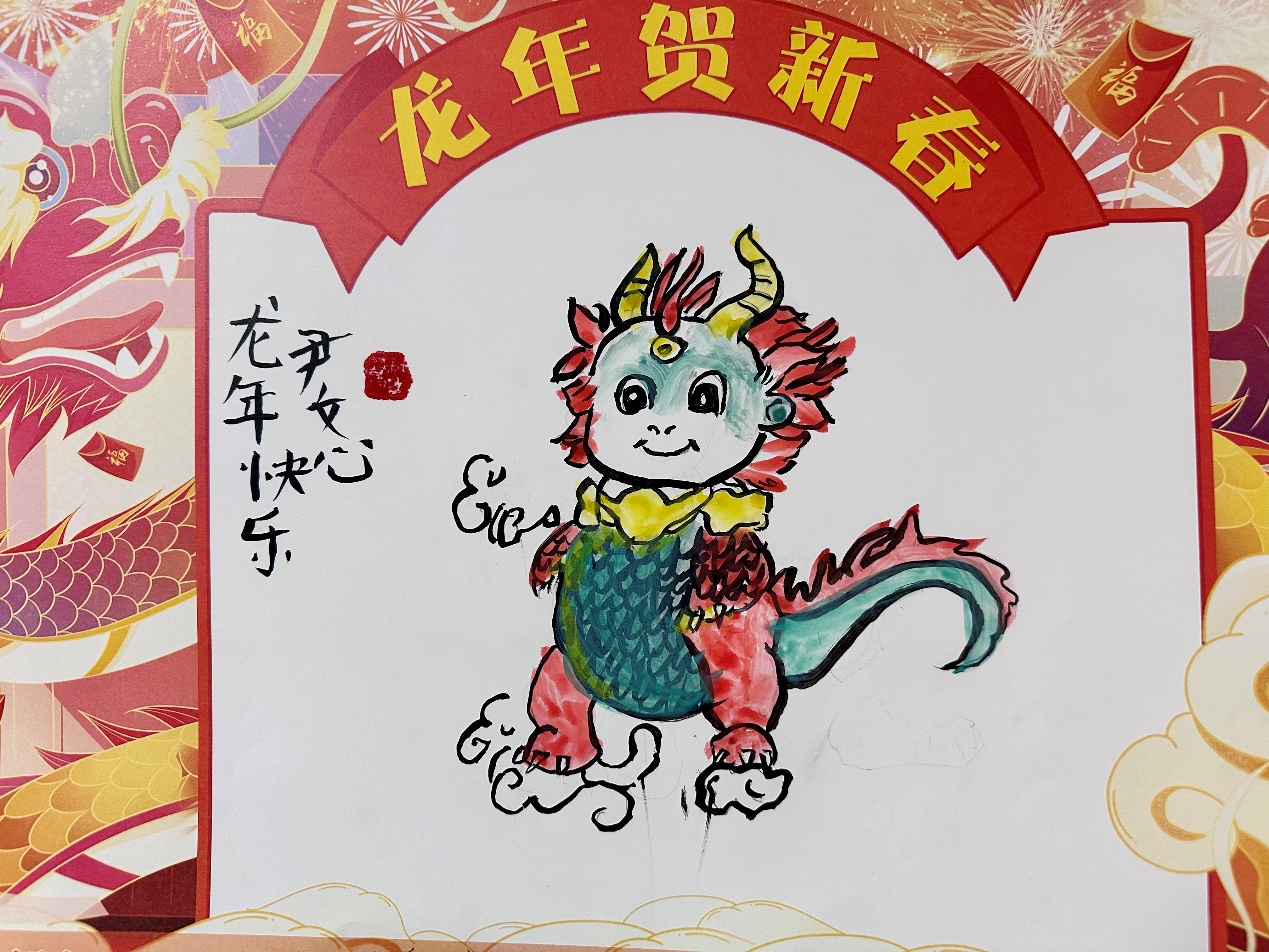 龙年贺新春
龙年快乐
尹文心
福
福
福